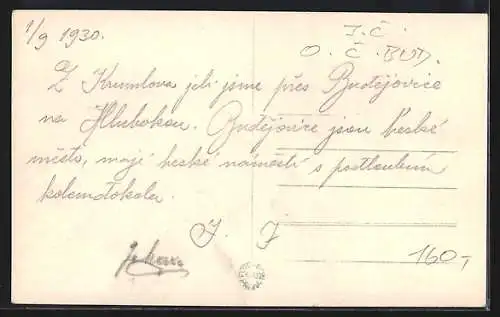 1/9 1930.
J.Č.
O. Č. BUD.
Z Krumlova jeli jsme přes Budějovice
na Hlubokou. Budějovice jsou hezké
město, mají hezké náměstí s podloubím
kolemdokola.
J. J
160,-